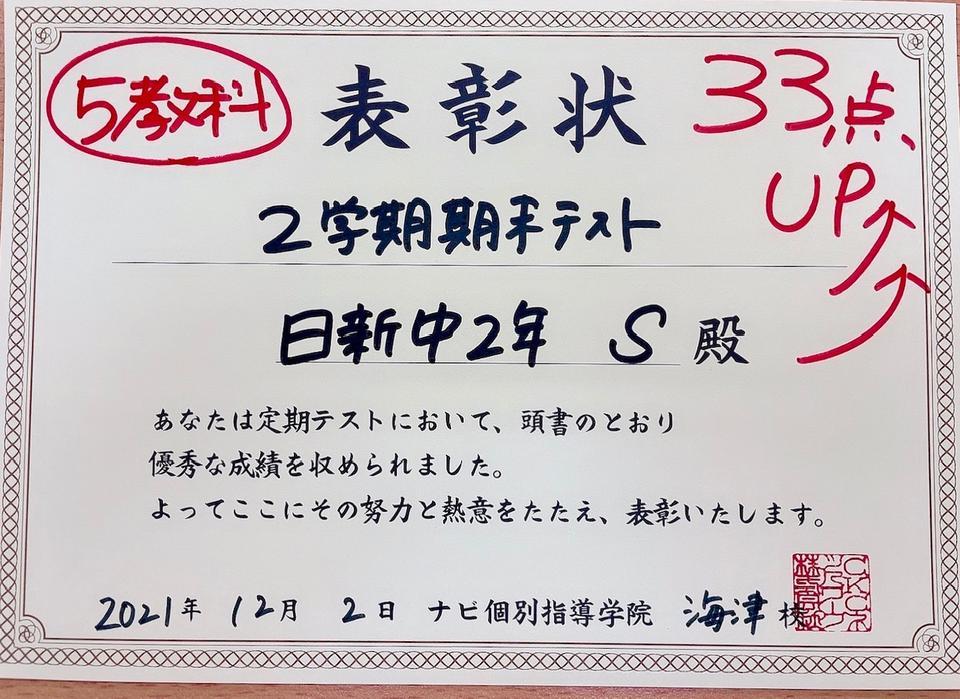 5教科
表彰状
33点
UP
2学期期末テスト
日新中2年 S 殿
あなたは定期テストにおいて、頭書のとおり
優秀な成績を収められました。
よってここにその努力と熱意をたたえ、表彰いたします。
2021年 12月 2日 ナビ個別指導学院 海津 校